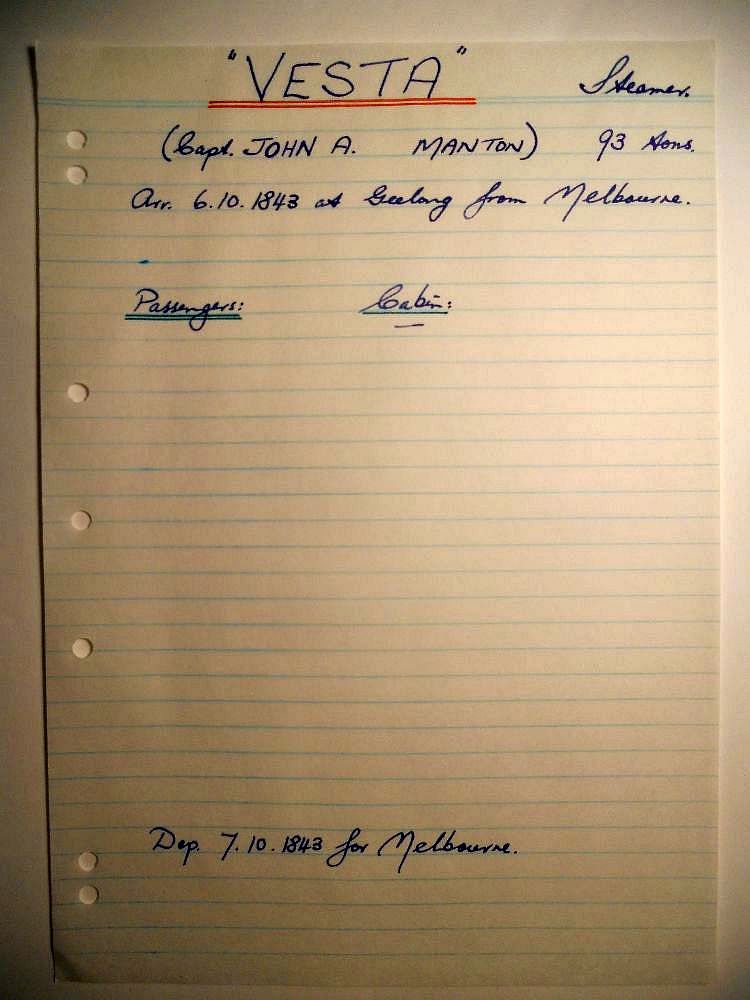 "VESTA" Steamer.
(Capt. JOHN A. MANTON) 93 tons.
Arr. 6.10.1843 at Geelong from Melbourne.
Passengers: Cabin:
—
Dep. 7.10.1843 for Melbourne.